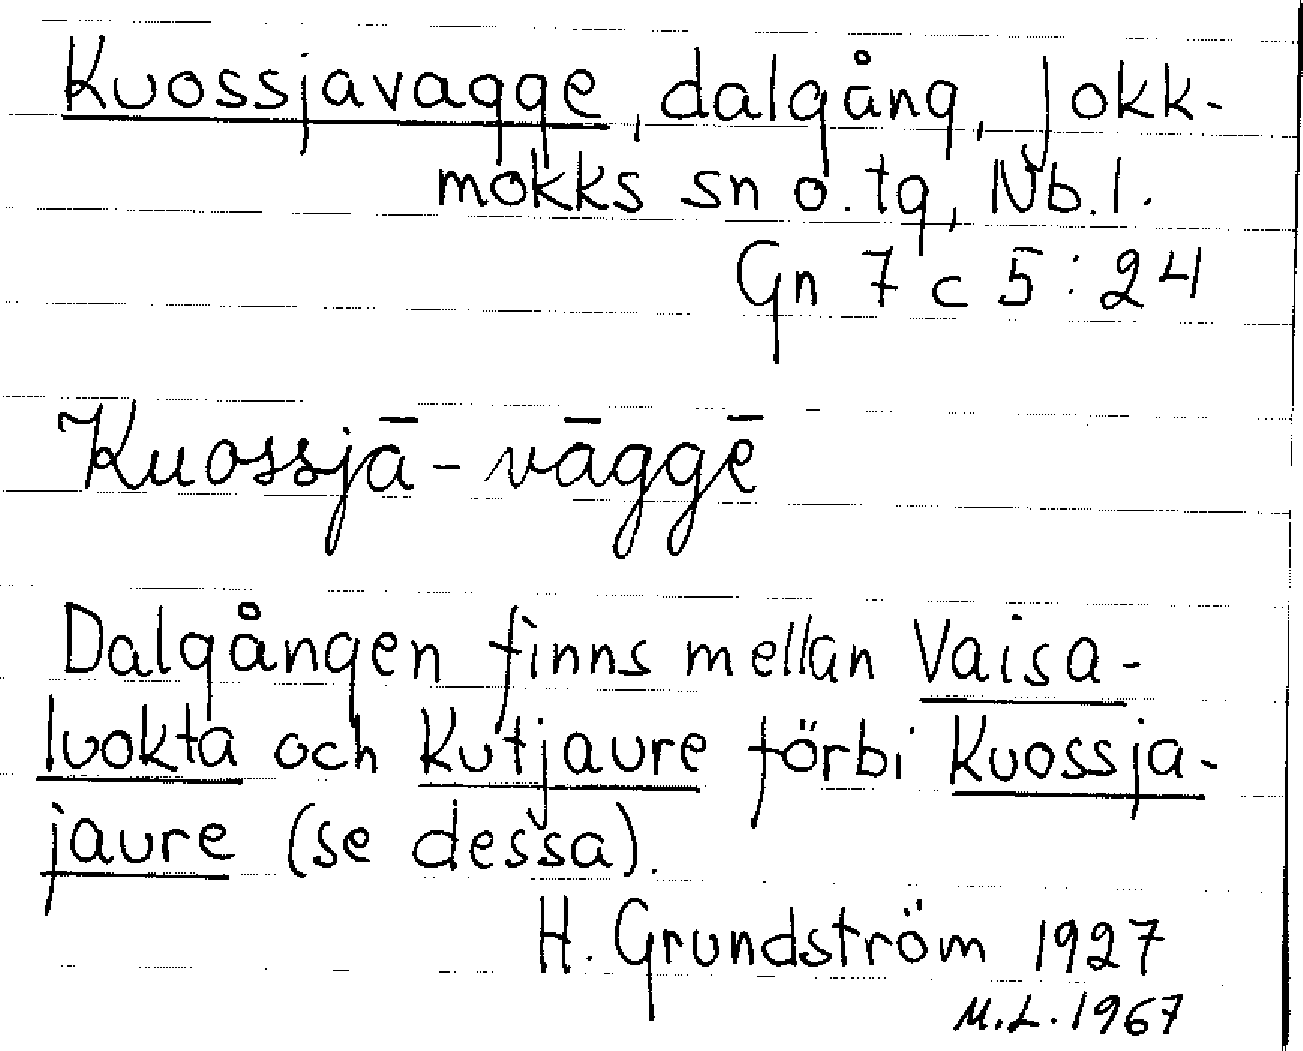 Kuossjavagge, dalgång, Jokk-
mokks sn o. tg, Nb.l.
Gn 7 c 5:24
Kuossjā-vāggē
Dalgången finns mellan Vaisa-
luokta och Kutjaure förbi Kuossja-
jaure (se dessa).
H. Grundström 1927
M.L. 1967